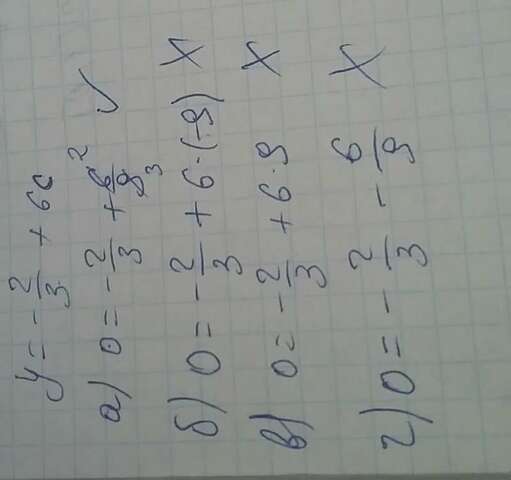 y = - 2/3 + 6c
а) 0 = - 2/3 + 6²/9³ ✓
б) 0 = - 2/3 + 6·(-9) X
в) 0 = - 2/3 + 6·9 X
г) 0 = - 2/3 - 6/9 X